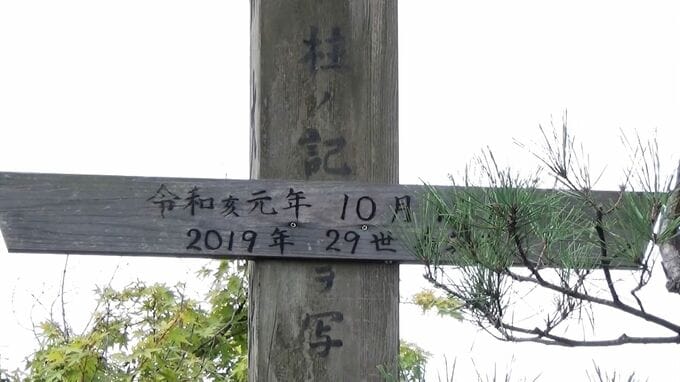 柱ノ記
ヲ写
令和亥元年 10月
2019年 29世